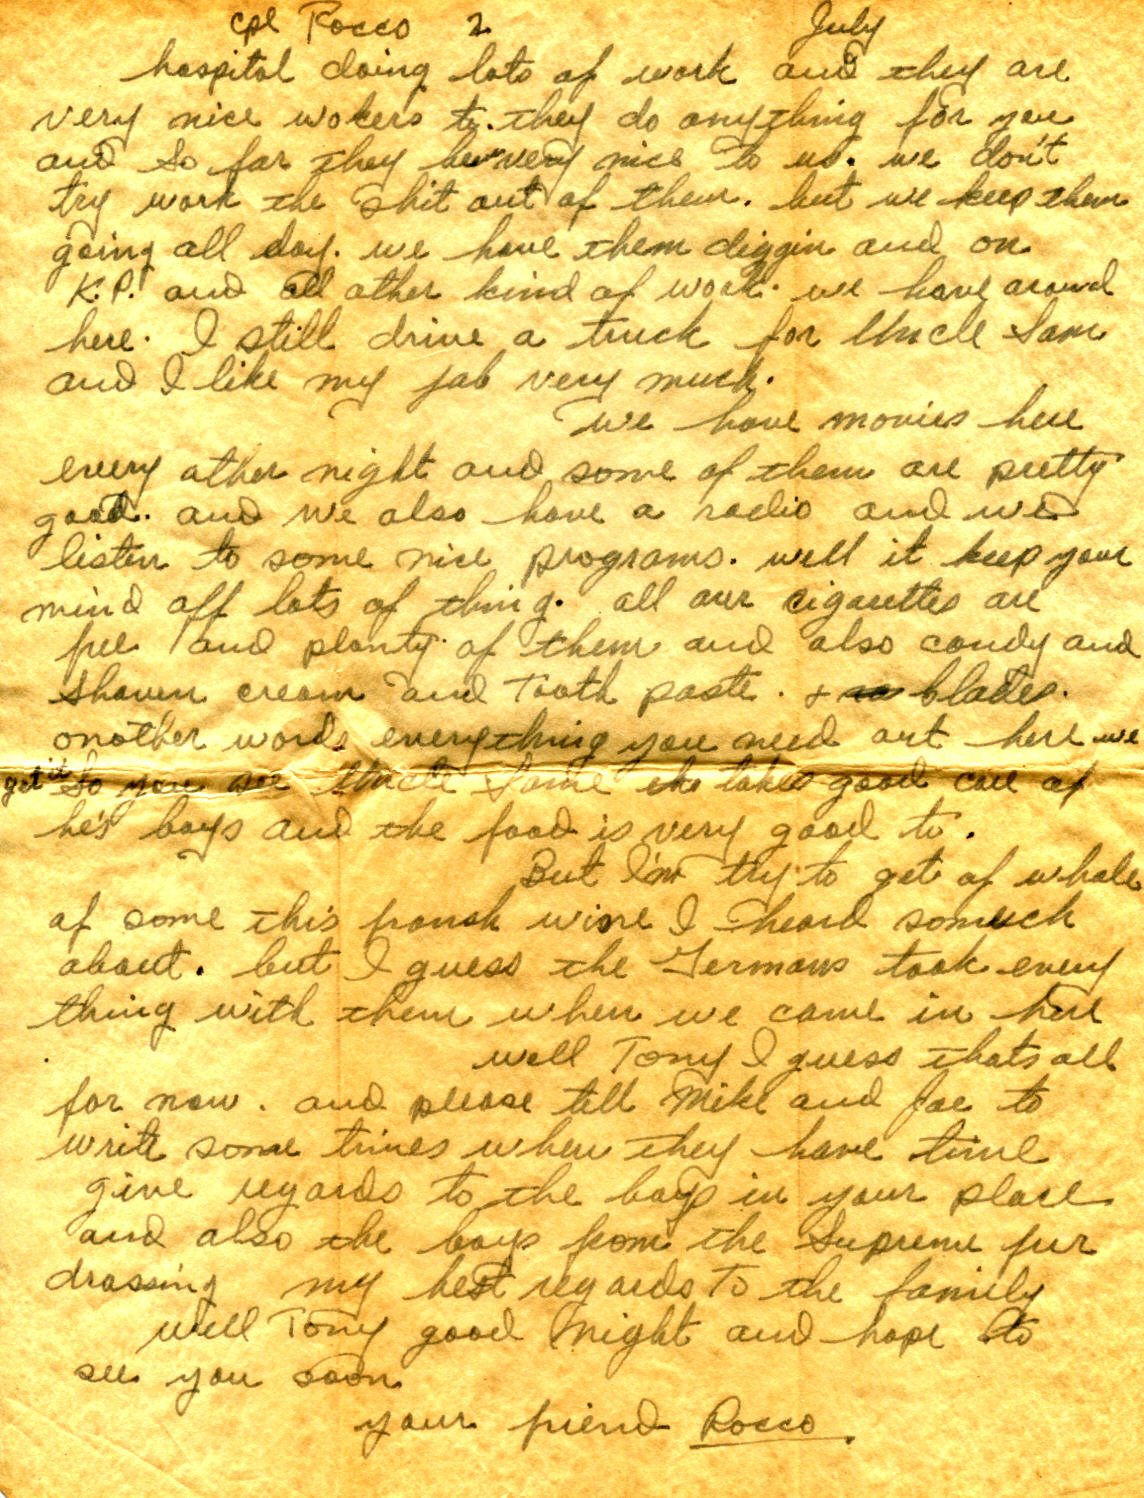 cpl Rocco 2 July
hospital doing lots of work and they are
very nice wokers to. they do anything for you
and so far they been very nice to us. we don't
try work the shit out of them. but we keep them
going all day. we have them diggin and on
K.P. and all other kind of work. we have around
here. I still drive a truck for Uncle Sam
and I like my job very much.
we have movies here
every other night and some of them are pretty
good. and we also have a radio and we
listen to some nice programs. well it keep your
mind off lots of thing. all our cigarettes are
free and planty of them and also candy and
shaven cream and Tooth paste. + blades.
onother words everything you need out here we
get it So you see Uncle Same he takes good care of
he's boys and the food is very good to.
But I'm try to get of whole
of some this franch wine I heard somuch
about. but I guess the Germans took every
thing with them when we came in here
well Tony I guess thats all
for now. and please tell Mike and Joe to
write some times when they have time
give regards to the boys in your place
and also the boys from the Supreme fur
drassing my best regards To the family
well Tony good night and hope to
see you soon
your friend Rocco.